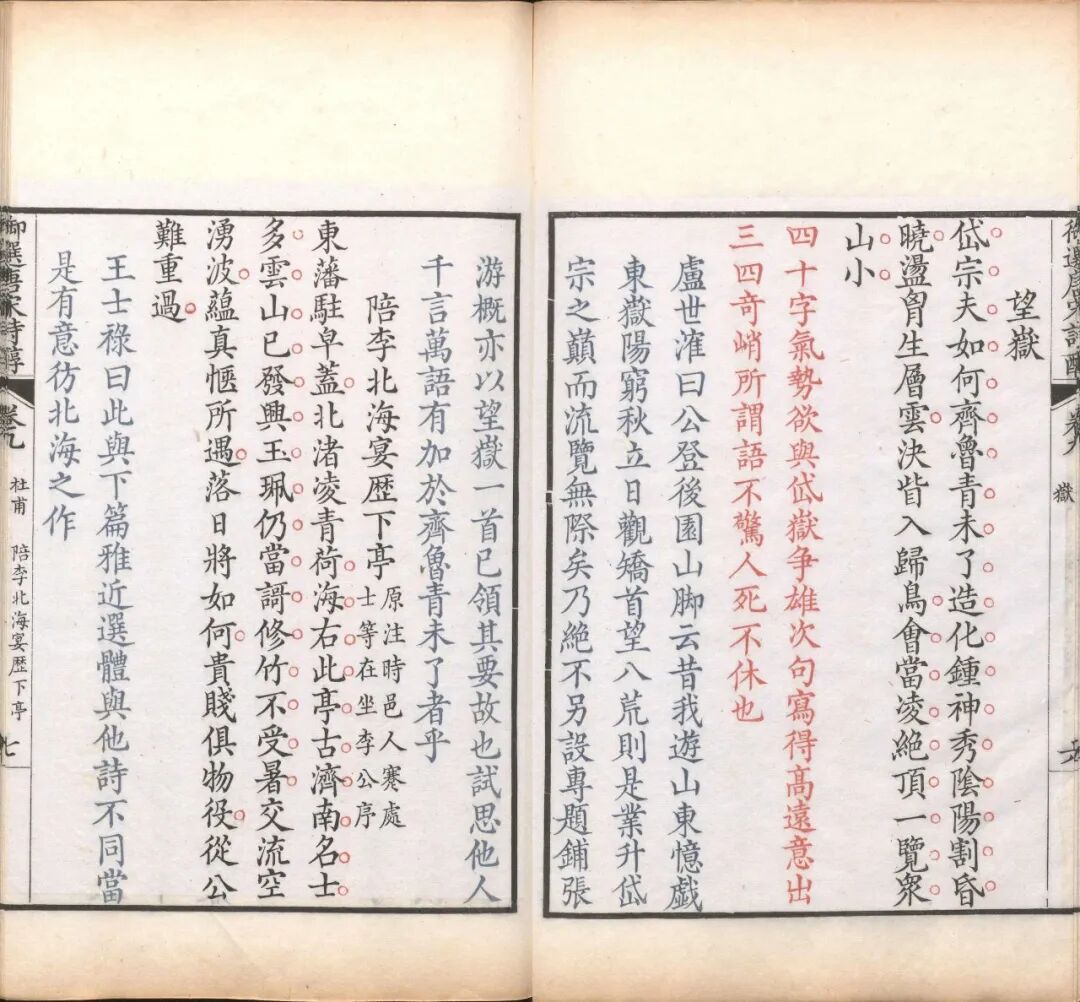 卷九
嶽
望嶽
岱宗夫如何齊魯青未了造化鍾神秀陰陽割昏
曉盪胷生層雲決眥入歸鳥會當凌絕頂一覽衆
山小
四十字氣勢欲與岱嶽爭雄次句寫得高遠意出
三四奇峭所謂語不驚人死不休也
盧世㴶曰公登後園山脚云昔我遊山東憶戲
東嶽陽窮秋立日觀矯首望八荒則是業升岱
宗之巔而流覽無際矣乃絕不另設專題鋪張
游概亦以望嶽一首已領其要故也試思他人
千言萬語有加於齊魯青未了者乎
陪李北海宴歷下亭 原注時邑人蹇處
士等在坐李公序
東藩駐皁蓋北渚凌青荷海右此亭古濟南名士
多雲山已發興玉珮仍當謌修竹不受暑交流空
湧波藴真愜所遇落日將如何貴賤俱物役從公
難重過
王士祿曰此與下篇雅近選體與他詩不同當
是有意彷北海之作
御選唐宋詩醇
卷九
杜甫
陪李北海宴歷下亭
七